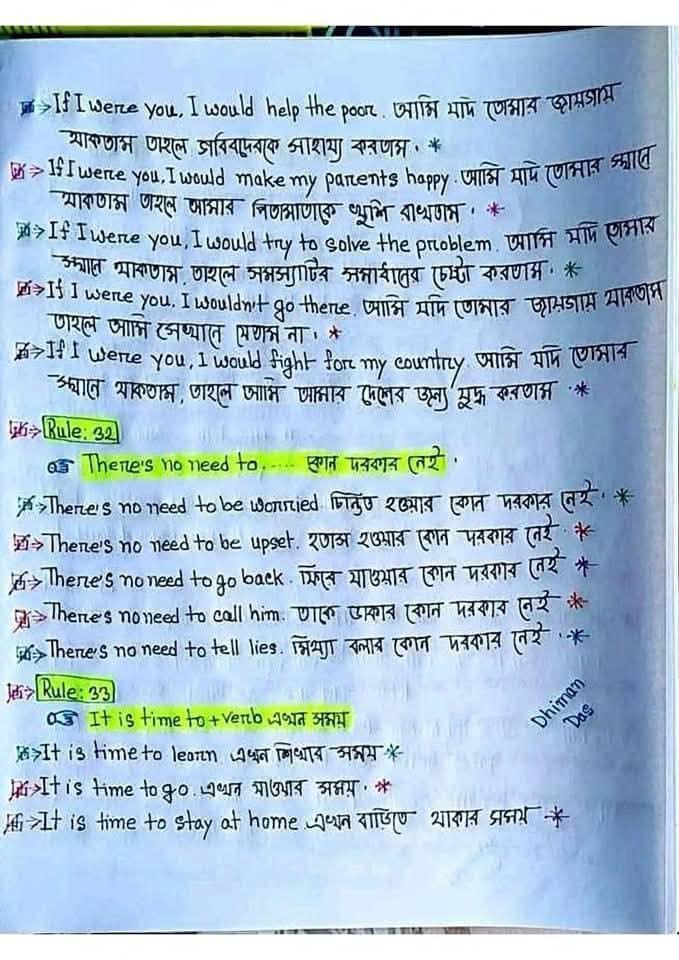 If I were you, I would help the poor. আমি যদি তোমার জায়গায়
থাকতাম তাহলে গরিবদেরকে সাহায্য করতাম. *
If I were you, I would make my parents happy. আমি যদি তোমার স্থানে
থাকতাম তাহলে আমার পিতামাতাকে খুশি রাখতাম. *
If I were you, I would try to solve the problem. আমি যদি তোমার
স্থানে থাকতাম, তাহলে সমস্যাটির সমাধানের চেষ্টা করতাম. *
If I were you, I wouldn't go there. আমি যদি তোমার জায়গায় থাকতাম
তাহলে আমি সেখানে যেতাম না. *
If I were you, I would fight for my country. আমি যদি তোমার
স্থানে থাকতাম, তাহলে আমি আমার দেশের জন্য যুদ্ধ করতাম. *
Rule: 32
There's no need to..... কোন দরকার নেই.
There's no need to be worried. চিন্তিত হওয়ার কোন দরকার নেই. *
There's no need to be upset. হতাশ হওয়ার কোন দরকার নেই. *
There's no need to go back. ফিরে যাওয়ার কোন দরকার নেই *
There's no need to call him. তাকে ডাকার কোন দরকার নেই *
There's no need to tell lies. মিথ্যা বলার কোন দরকার নেই. *
Rule: 33
It is time to + verb এখন সময়
Dhiman
Das
It is time to learn. এখন শিখার সময় *
It is time to go. এখন যাওয়ার সময়. *
It is time to stay at home. এখন বাড়িতে থাকার সময় *